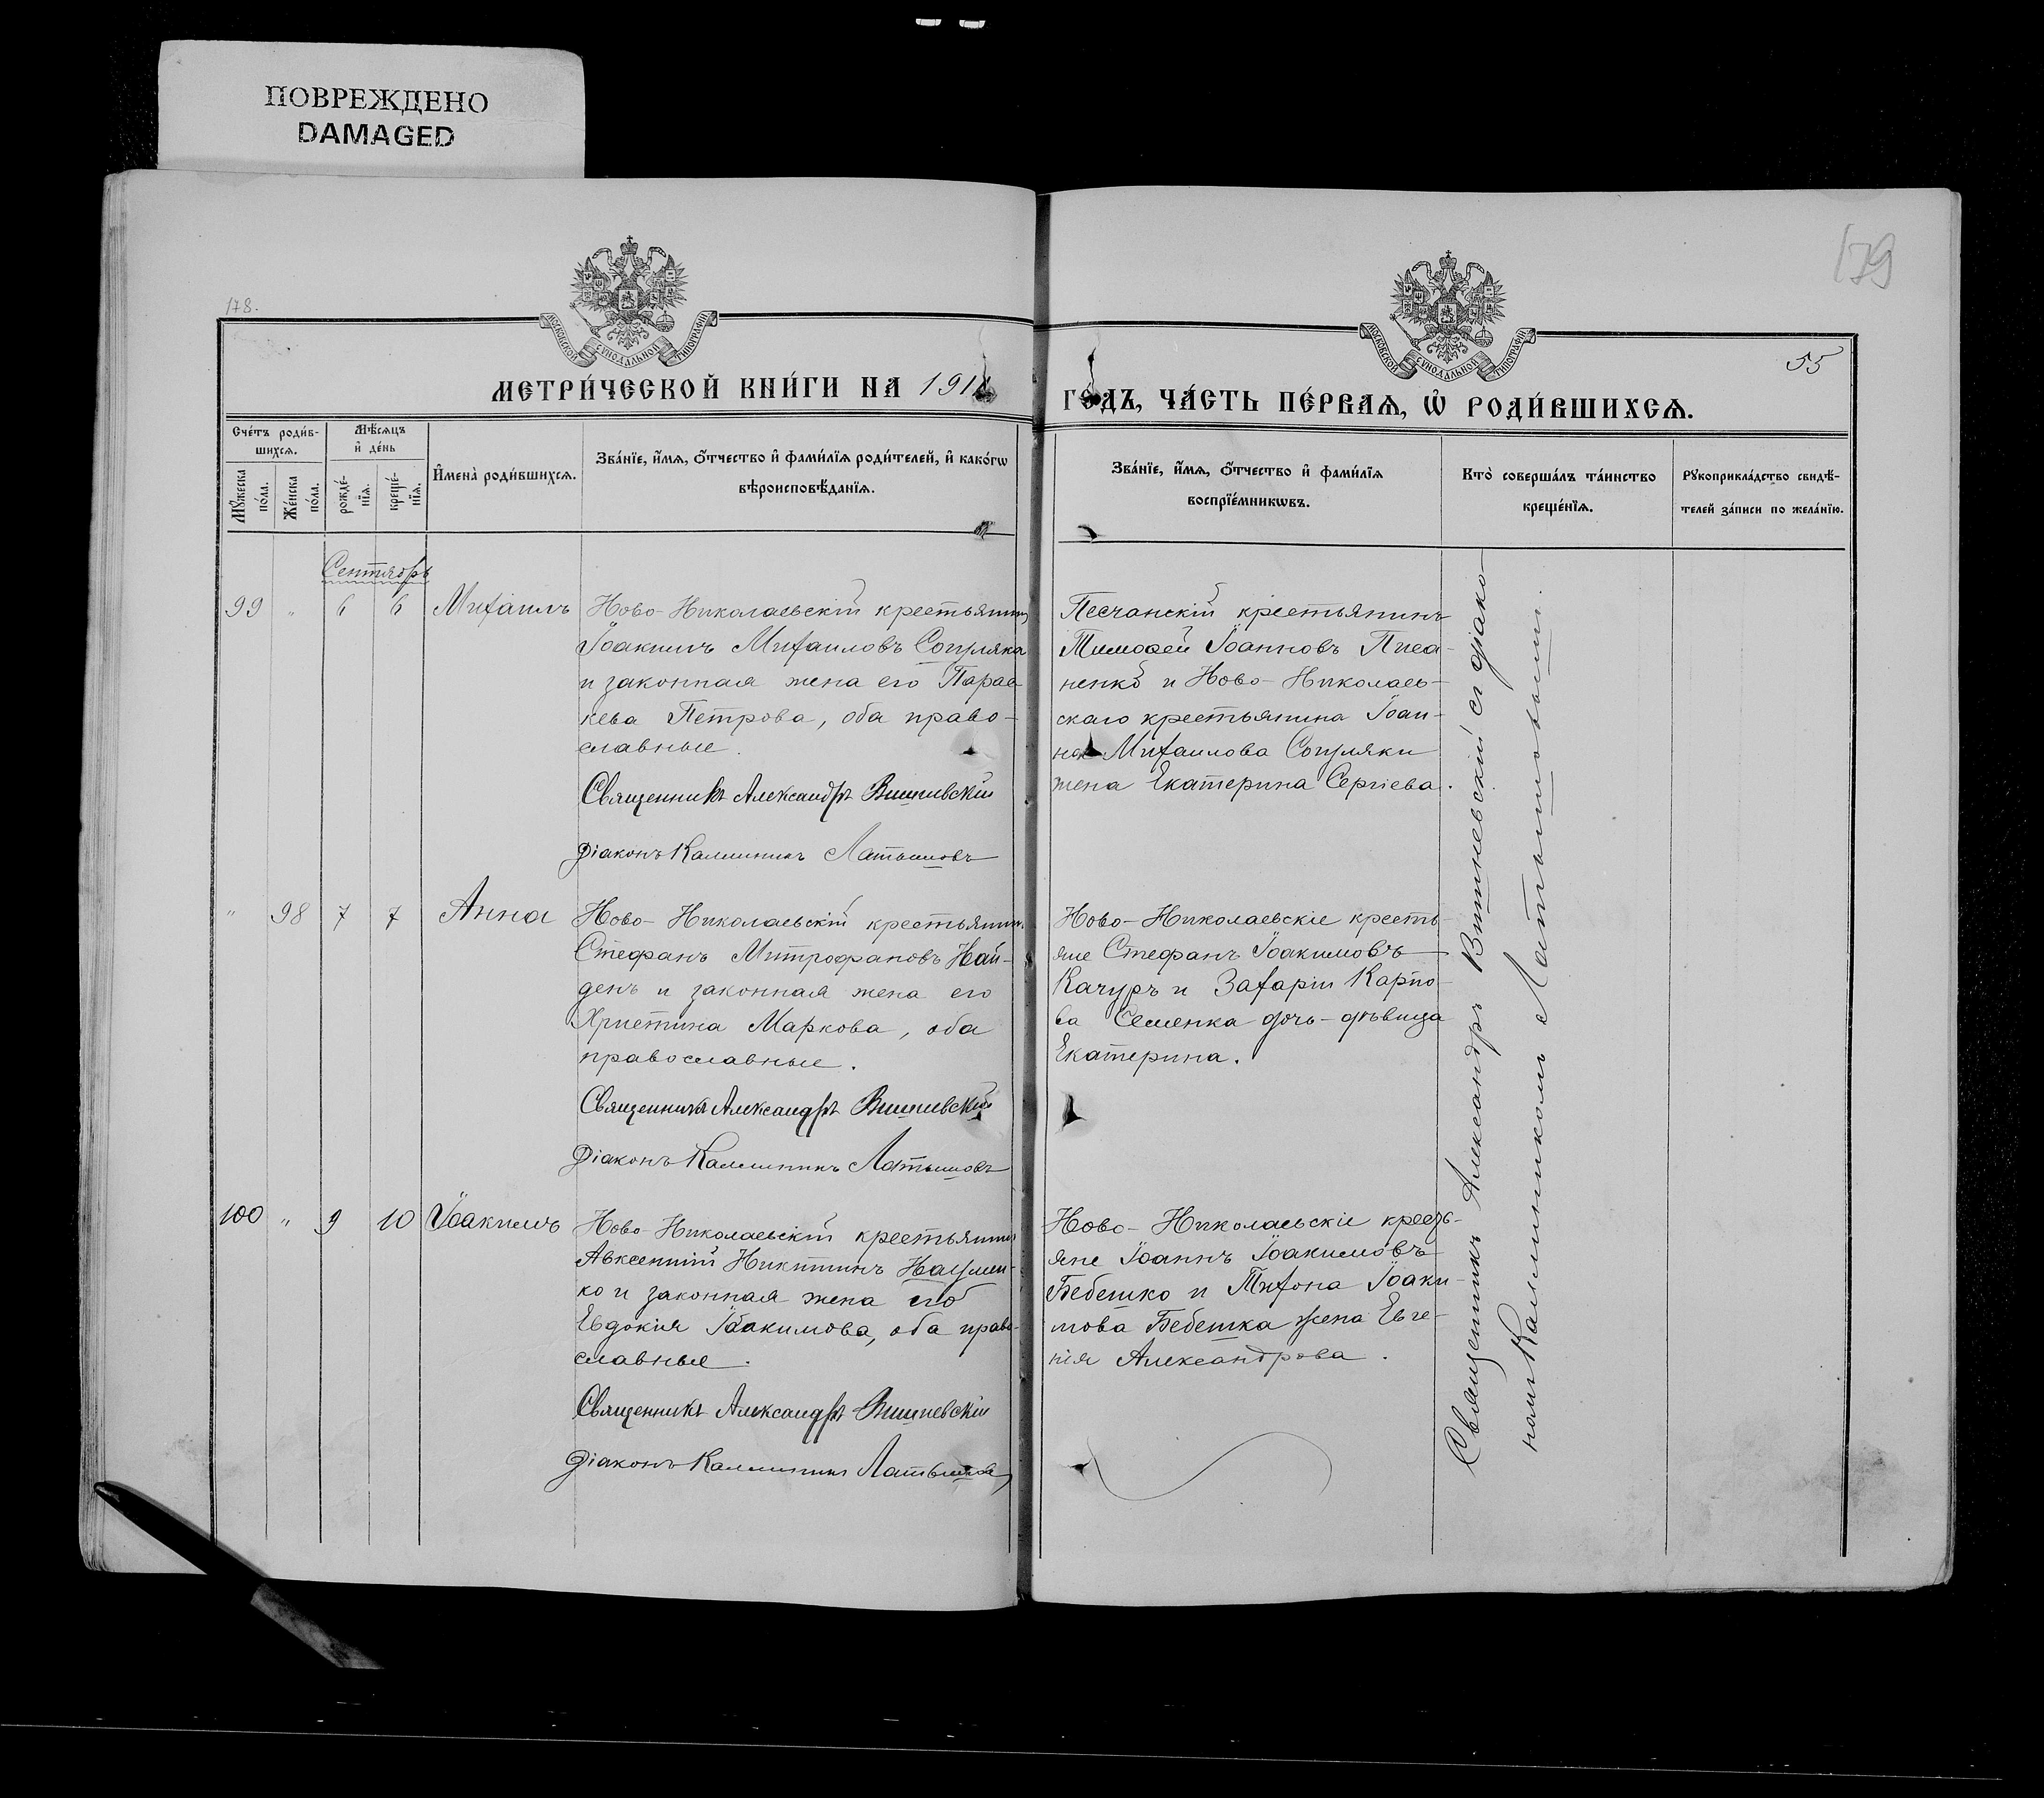 ПОВРЕЖДЕНО
DAMAGED
178.
179
МОСКОВСКОЙ СѴНОДАЛЬНОЙ ТИПОГРАФІИ
МОСКОВСКОЙ СѴНОДАЛЬНОЙ ТИПОГРАФІИ
55
МЕТРИ́ЧЕСКОЙ КНИ́ГИ НА 191
ГОДЪ, ЧА́СТЬ ПЕ́РВАѦ, Ѡ҆ РОДИ́ВШИХСѦ.
Сче́тъ роди́в-
шихсѧ.
Мѣ́сѧцъ
и҆ де́нь
Мꙋ́жеска
по́ла.
Же́нска
по́ла.
рожде́-
нїѧ.
креще́-
нїѧ.
И҆мена̀ роди́вшихсѧ.
Зва́нїе, и҆́мѧ, ѻ҆́тчество и҆ фами́лїѧ роди́телей, и҆ како́гѡ
вѣроисповѣ́данїѧ.
Зва́нїе, и҆́мѧ, ѻ҆́тчество и҆ фами́лїѧ
воспрїе́мникѡвъ.
Кто̀ соверша́лъ та́инство
креще́нїѧ.
Рꙋкоприкла́дство свидѣ́-
телей за́писи по жела́нїю.
Сентябрь
99 " 6 6 Михаилъ
Ново-Николаевскій крестьянинъ
Іоакимъ Михаиловъ Сопуляка
и законная жена его Парас-
кева Петрова, оба право-
славные.
Священникъ Александръ Вишневскій
Діаконъ Каллиникъ Латышовъ
Песчанскій крестьянинъ
Тимоѳей Іоанновъ Писа-
ненко и Ново-Николаев-
скаго крестьянина Іоан-
на Михаилова Сопуляки
жена Екатерина Сергіева.
" 98 7 7 Анна
Ново-Николаевскій крестьянинъ
Стефанъ Митрофановъ Най-
денъ и законная жена его
Христина Маркова, оба
православные.
Священникъ Александръ Вишневскій
Діаконъ Каллиникъ Латышовъ
Ново-Николаевскіе кресть-
яне Стефанъ Іоакимовъ
Качуръ и Захарія Карпо-
ва Семенка дочь-дѣвица
Екатерина.
100 " 9 10 Іоакимъ
Ново-Николаевскій крестьянинъ
Авксентій Никитинъ Наумен-
ко и законная жена его
Евдокія Іоакимова, оба право-
славные.
Священникъ Александръ Вишневскій
Діаконъ Каллиникъ Латышовъ
Ново-Николаевскіе кресть-
яне Іоаннъ Іоакимовъ
Бебешко и Тихона Іоаки-
мова Бебешка жена Евге-
нія Александрова.
Священникъ Александръ Вишневскій съ діако-
номъ Каллиникомъ Латышовымъ.